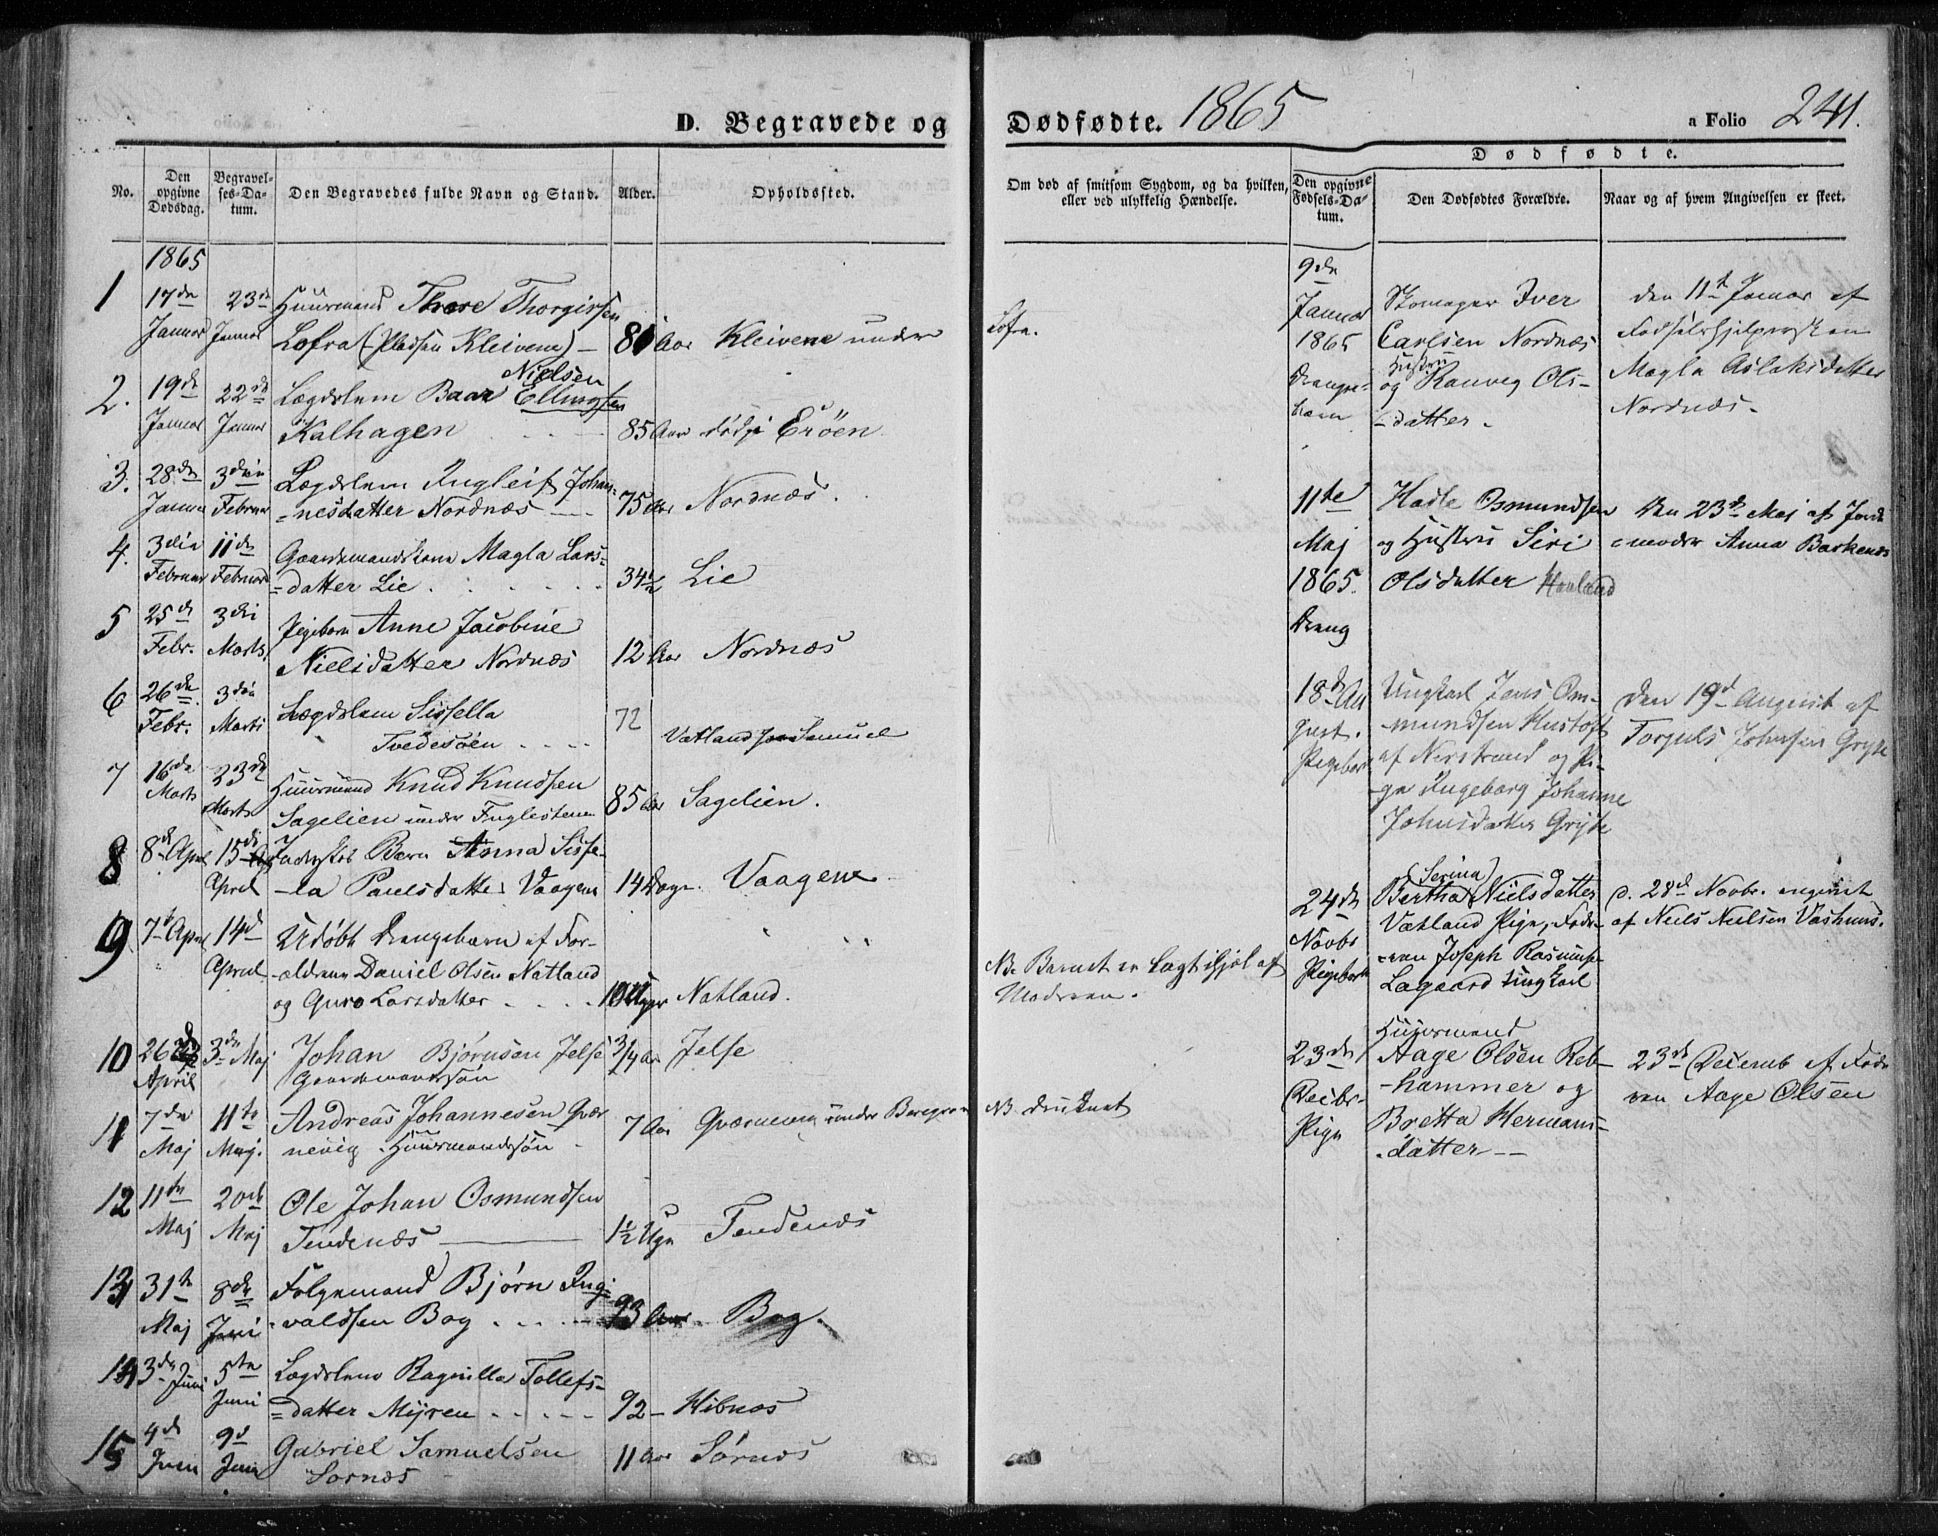 D. Begravede og Dødfødte. 1865
a Folio 241.
No.
Den opgivne Dødsdag.
Begravelses-Datum.
Den Begravedes fulde Navn og Stand.
Alder.
Opholdssted.
Om død af smitsom Sygdom, og da hvilken,
eller ved ulykkelig Hændelse.
Dødfødte.
Den opgivne Fødsels-Datum.
Den Dødfødtes Forældre.
Naar og af hvem Angivelsen er skeet.
1865
1 17de Januar 23de Januar Huusmand Thore Thorgirsen
Lofra (Pladsen Kleivene) 81 Aar Kleivene under Lofra.
2. 19de Januar 22de Januar Lægdslem Baar Nielsen Ellingsen
Kalhagen 85 Aar død i Erøen
3. 28de Januar 3die Februar Lægdslem Ingleif Johan-
=nesdatter Nordnæs 75 Aar Nordnæs.
4. 3die Februar 11de Februar Gaardmandskone Magla Lars-
=datter Lie 34 1/2 Lie
5 25de Febr. 3die Marts. Pigebarn Anne Jacobine
Nielsdatter Nordnæs 12 Aar Nordnæs
6 26de Febr. 3die Marts Lægdslem Sissella
Tvedesøen 72 Vatland hos Samuel
7 16de Marts 23de Marts Huusmand Knud Knudsen
Sagelien under Fuglesteen 85 Aar Sagelien.
8 8de April 15de April Barn Anna Sisse-
-la Paulsdatter Vaagene 14 Dage. Vaagene
9 7de April 14de April Udøbt Drengebarn af For-
-ældrene Daniel Olsen Natland
og Guro Larsdatter 10 Uger Natland.
NB. Barnet er lagt ihjel af
Moderen.
10 26de April 3de Maj Johan Bjørnsen Jelse 3/4 Aar Jelse
Gaardmandssøn
11 7de Maj 11te Maj. Andreas Johannesen Qvær
nevig. Huusmandssøn 7 Aar Qværnevig under Baregrav NB druknet
12 11te Maj 20de Maj Ole Johan Osmundsen
Tendenæs 1 1/2 Uge Tendenæs
13 31te Maj 8de Juni Folgemand Bjørn Ing-
-valdsen Bog 93 Aar. Bog.
14 3de Juni 5te Juni Lægdslem Ragnilla Tollefs-
=datter Myren 92 Hibnæs
15 4de Juni 9de Juni Gabriel Samuelsen
Sørnæs 11 Aar Sørnæs
9de Januar 1865 Drengebarn
Skomager Iver
Carlsen Nordnæs
Hustru
og Ranveg Ols-
-datter.
den 11te Januar af
Fødselshjelpersken
Magla Aslaksdatter
Nordnæs.
11te Maj 1865. Dreng
Hadle Osmundsen
og Hustru Siri
Olsdatter Hauland
Den 23de Maj af Jorde
=moder Anna
18de August. Pigebarn
Ungkarl Jens Os-
-mundsen Hustoft
af Nerstrand og Pi-
-ge Ingeborg Johanne
Johnsdatter Gryte
den 19de August af
Torjuls Johnsen Gryte
24de Novbr Pigebarn
(Serina)
Bertha Nielsdatter
Vatland Pige, Fade-
-ren Joseph Rasmuss.
Lagaard Ungkarl
d. 28de Novbr. angivet
af Neils Nielsen Vashuus.
23de Decbr. Pige
Huusmand
Aage Olsen Reb-
-hammer og
Bretta Hermans-
-datter
23de Decemb af Fade
ren Aage Olsen